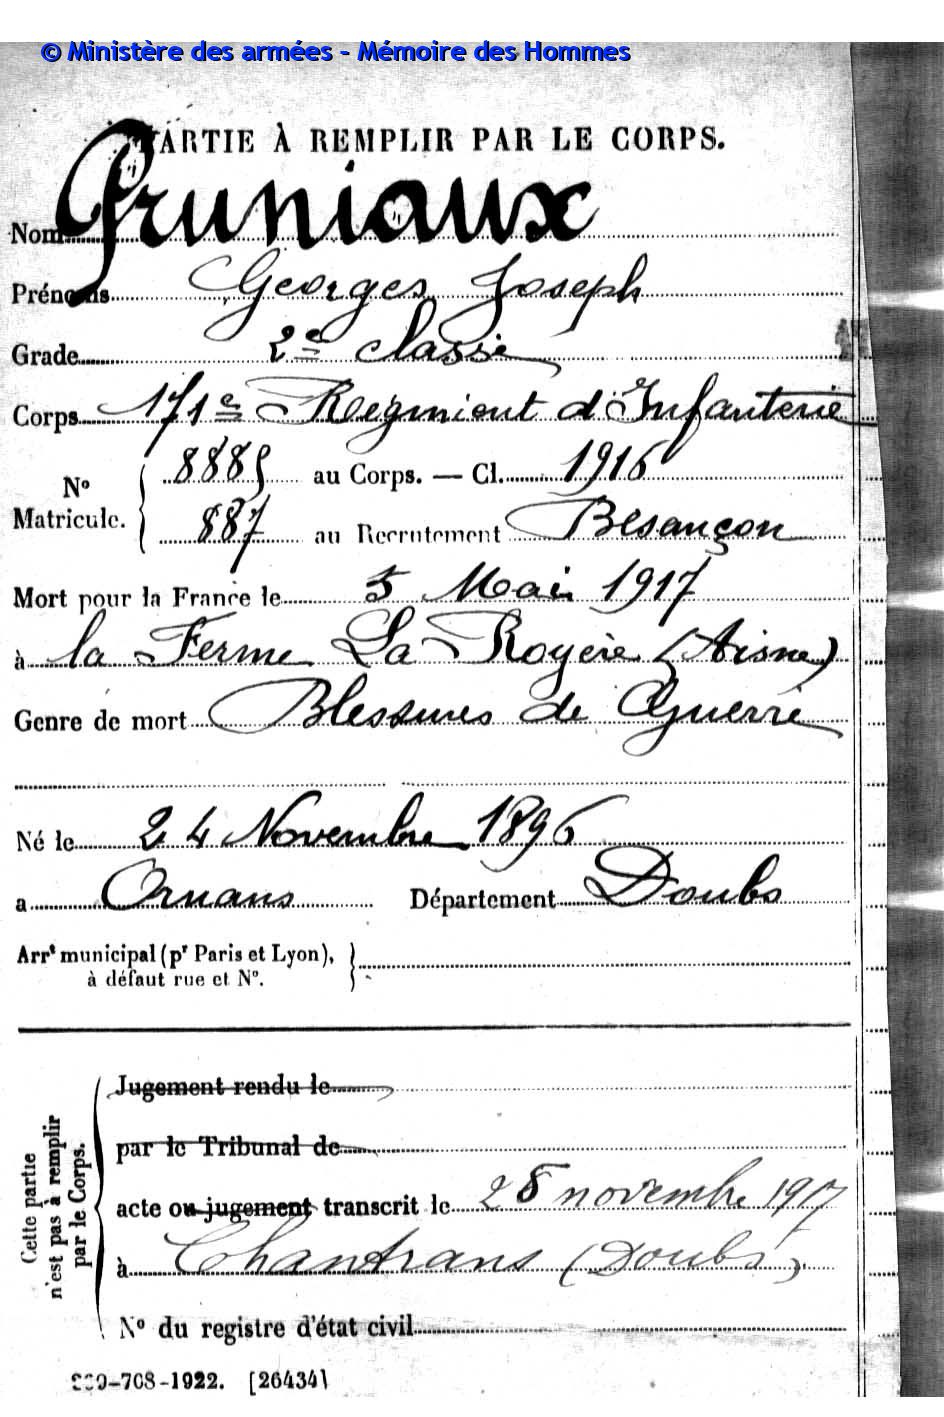 © Ministère des armées - Mémoire des Hommes
PARTIE À REMPLIR PAR LE CORPS.
Nom Pruniaux
Prénoms Georges Joseph
Grade 2e classe
Corps 171e Régiment d'Infanterie
No Matricule. { 8885 au Corps. — Cl. 1916
887 au Recrutement Besançon
Mort pour la France le 5 Mai 1917
à la Ferme La Royère (Aisne)
Genre de mort Blessures de Guerre
Né le 24 Novembre 1896
a Ornans Département Doubs
Arrt municipal (pr Paris et Lyon), }
à défaut rue et No.
Cette partie
n'est pas à remplir
par le Corps.
Jugement rendu le
par le Tribunal de
acte ou jugement transcrit le 28 novembre 1917
à Chantrans (Doubs)
No du registre d'état civil
-708-1922. [26434]